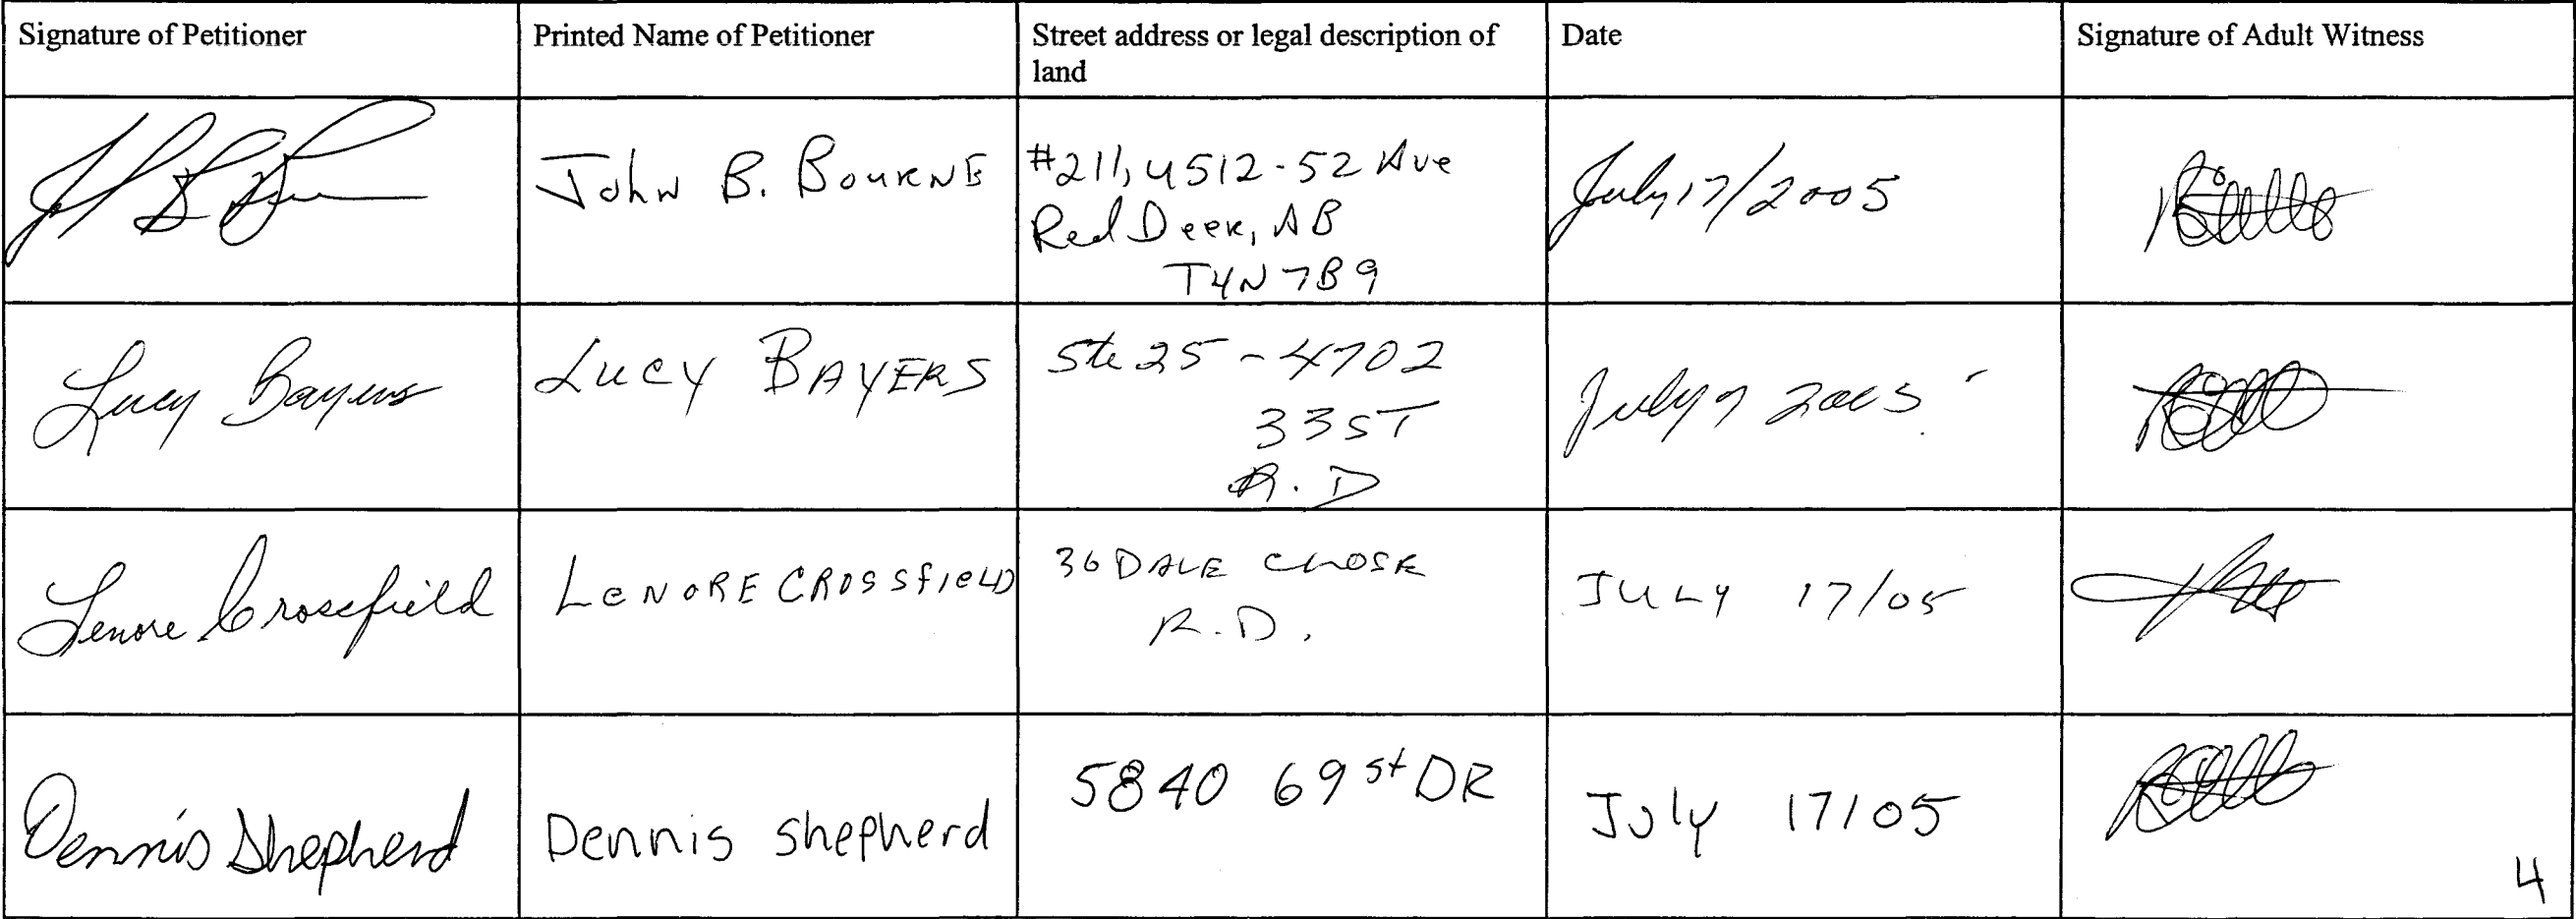 Signature of Petitioner
Printed Name of Petitioner
Street address or legal description of
land
Date
Signature of Adult Witness
John B. Bourne
#211, 4512-52 Ave
Red Deer, AB
T4N 7B9
July 17/2005
Lucy Bayers
Lucy Bayers
Ste 25-4702
33 ST
R.D
July 2005
Lenore Crossfield
LeNORE CROSSfIeLD
36 DALE CLOSE
R.D.
JULY 17/05
Dennis Shepherd
Dennis Shepherd
5840 69 st DR
July 17/05
4